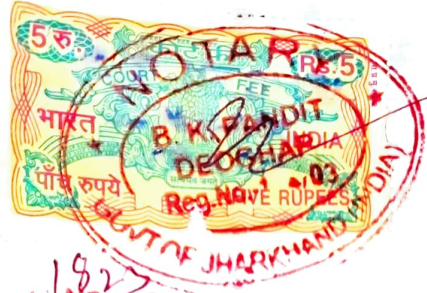 5 रु.
Rs.5
COURT FEE
भारत
INDIA
पाँच रुपये
FIVE RUPEES
NOTARY
B. K. PANDIT
DEOGHAR
Reg. No.
03
GOVT OF JHARKHAND (INDIA)